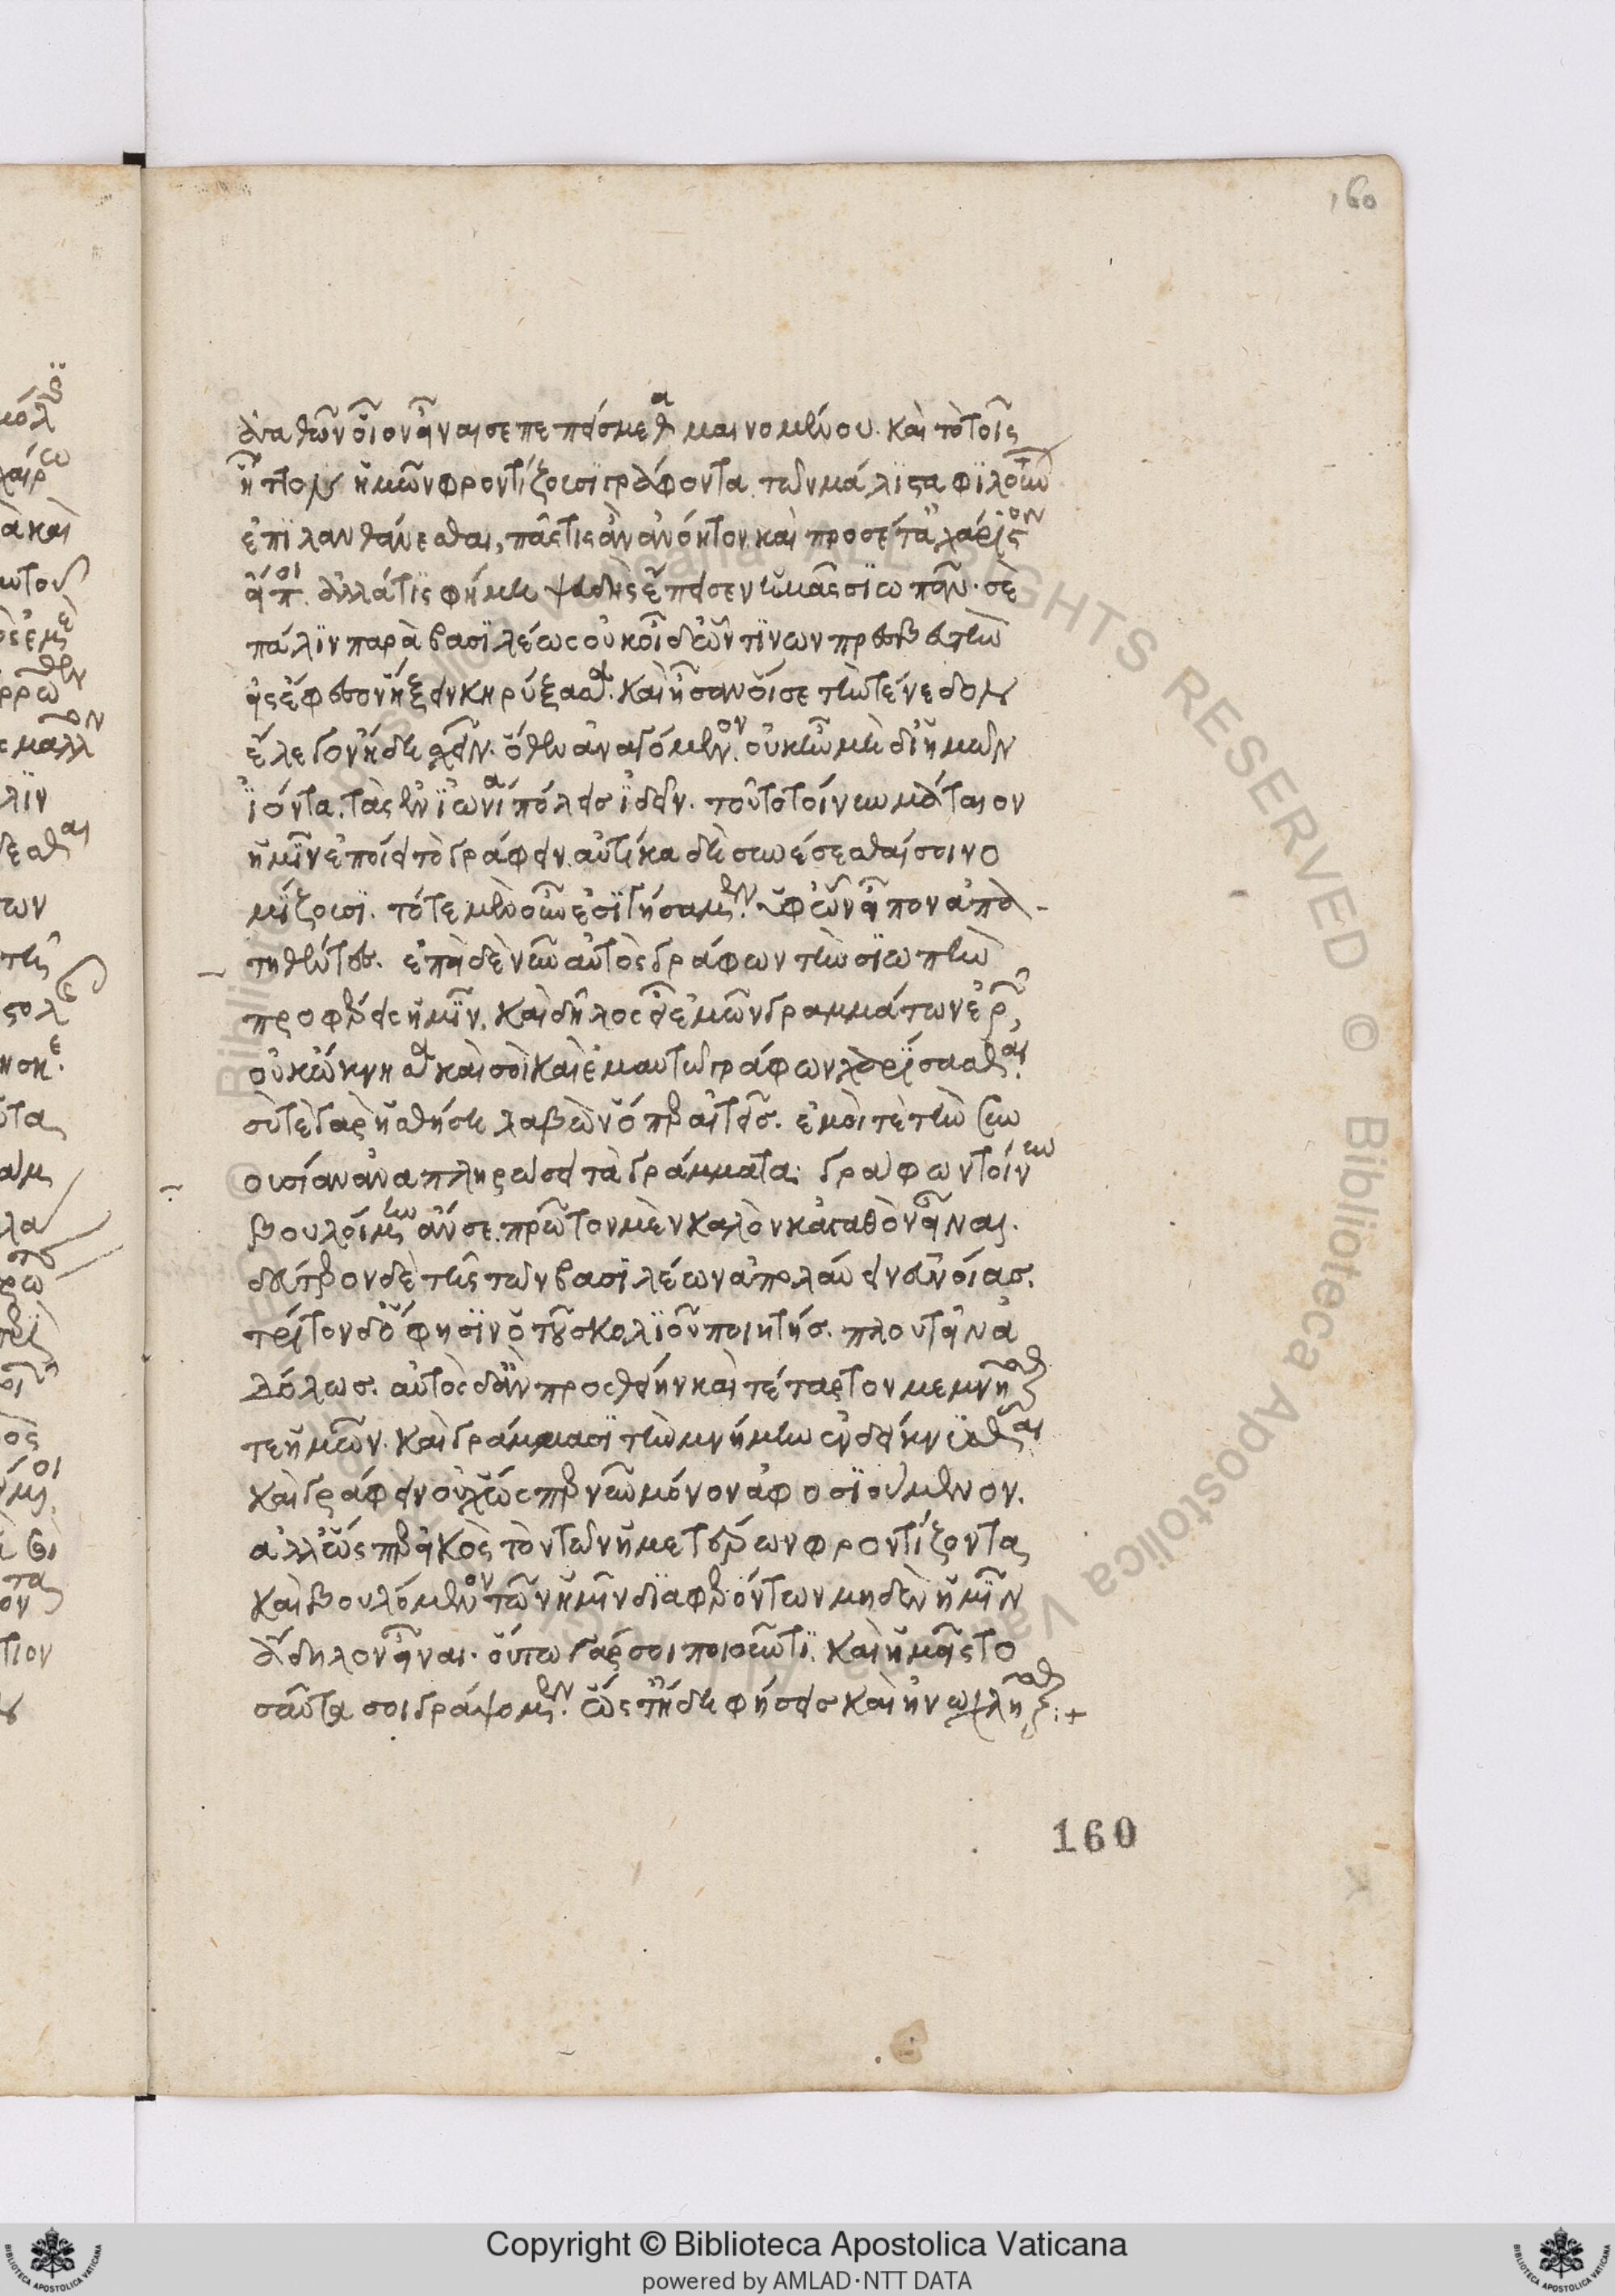 160
ἀγαθῶν οἷον εἶναι σε πεπείσμεθα μαινομένου. καὶ τὸ τοῖς
ἧττον ἡμῶν φροντίζουσι γράφοντα τῶν μάλιστα φιλούντων
ἐπιλανθάνεσθαι, πῶς τις ἂν ἀνόητον καὶ προσέτ' ἀχάριστον
εἴποι. ἀλλά τις φήμη ψευδὴς ἔπεισεν ἡμᾶς σιωπᾶν. σὲ
πάλιν παρὰ βασιλέως οὐκ οἶδ' ὧν τινων πρεσβευτὴν
εἰς ἔφεσον ἥξειν κηρύξασα. καὶ ἦσαν οἵ σε τὴν τένεδον
ἔλεγον ἤδη ἔχειν. ὅθεν ἀναγόμενον οὐκ ἦν μὴ δι' ἡμῶν
ἰόντα τὰς ἐν ἰωνίᾳ πόλεις ἰδεῖν. τοῦτο τοίνυν μάταιον
ἡμῖν ἐποίει τὸ γράφειν αὐτίκα δὴ συνέσεσθαί σοι νο
μίζουσι. τότε μὲν οὖν ἐσιγήσαμεν ὑφ' ὧν εἶπον ἀπα
τηθέντες. ἐπεὶ δὲ νῦν αὐτὸς γράφων τὴν σιωπὴν
προφέρεις ἡμῖν. καὶ δῆλος εἶ ἐμῶν γραμμάτων ἐρῶν,
οὐκ ὤκνησα καὶ σοὶ καὶ ἐμαυτῷ γράφων χαρίσασθαι.
σύ τε γὰρ ἡσθήσῃ λαβὼν ὅπερ αἰτεῖς. ἐμοί τε τὴν συν
ουσίαν ἀναπληρώσει τὰ γράμματα. γράφων τοίνυν
βουλοίμην ἄν σε πρῶτον μὲν καλὸν κἀγαθὸν εἶναι.
δεύτερον δὲ τῆς τῶν βασιλέων ἀπολαύειν εὐνοίας.
τρίτον δ' ὅ φησιν ὁ τοῦ σκολιοῦ ποιητής. πλουτεῖν ἀ
δόλως. αὐτὸς δ' ἂν προσθείην καὶ τέταρτον μεμνῆσθαί
τε ἡμῶν. καὶ γράμμασι τὴν μνήμην ἐνδείκνυσθαι
καὶ γράφειν οὐχ ὥσπερ νῦν μόνον ἀφοσιούμενον.
ἀλλ' ὥσπερ εἰκὸς τὸν τῶν ἡμετέρων φροντίζοντα
καὶ βουλόμενον τῶν ἡμῖν διαφερόντων μηδὲν ἡμῖν
ἄδηλον εἶναι. οὕτω γάρ σοι ποιοῦντι. καὶ ἡμεῖς το
σαῦτά σοι γράψομεν. ὥς τ' ἤδη φήσεις καὶ ἠνωχλῆσθαι:+
160
Copyright © Biblioteca Apostolica Vaticana
powered by AMLAD·NTT DATA